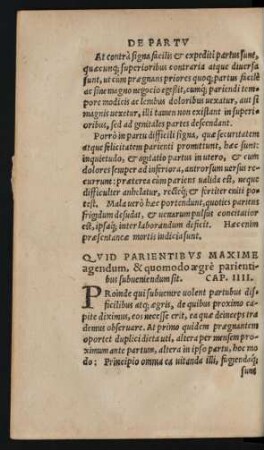 DE PARTV
At contrà signa facilis & expediti partus sunt,
quæcunq; superioribus contraria atque diuersa
sunt, ut cum prægnans priores quoq; partus facilè
ac sine magno negocio egisit, eumq; pariendi tem-
pore modicis ac lenibus doloribus uexatur, aut si
magnis uexetur, illi tamen non exsistant in superi-
oribus, sed ad genitales partes descendant.
Porrò in partu difficili signa, quæ securitatem
atque felicitatem parienti promittunt, hæc sunt:
inquietudo, & agitatio partus in utero, & cum
dolores semper ad inferiora, antrorsum uersus re-
currunt: præterea cùm pariens ualida est, neque
difficulter anhelatur, rectéq; & fortiter eniti po-
test. Mala uerò hæc portendunt, quoties pariens
frigidum desudat, & uenarum pulsus concitatior
est, ipsaq; inter laborandum deficit. Hæc enim
præsentaneæ mortis indicia sunt.
QVID PARIENTIBVS MAXIME
agendum, & quomodo ægrè parienti-
bus subueniendum sit. CAP. IIII.
PRoinde qui subuenire uolent partubus dif-
ficilibus atq; ægris, de quibus proximo ca-
pite diximus, eos necesse erit, ea quæ deinceps tra-
demus obseruare. At primo quidem prægnantem
oportet duplici diæta uti, altera per mensem pro-
ximum ante partum, altera in ipso partu, hoc mo
do: Principio omnia ea uitanda illi, fugiendaq;
sunt